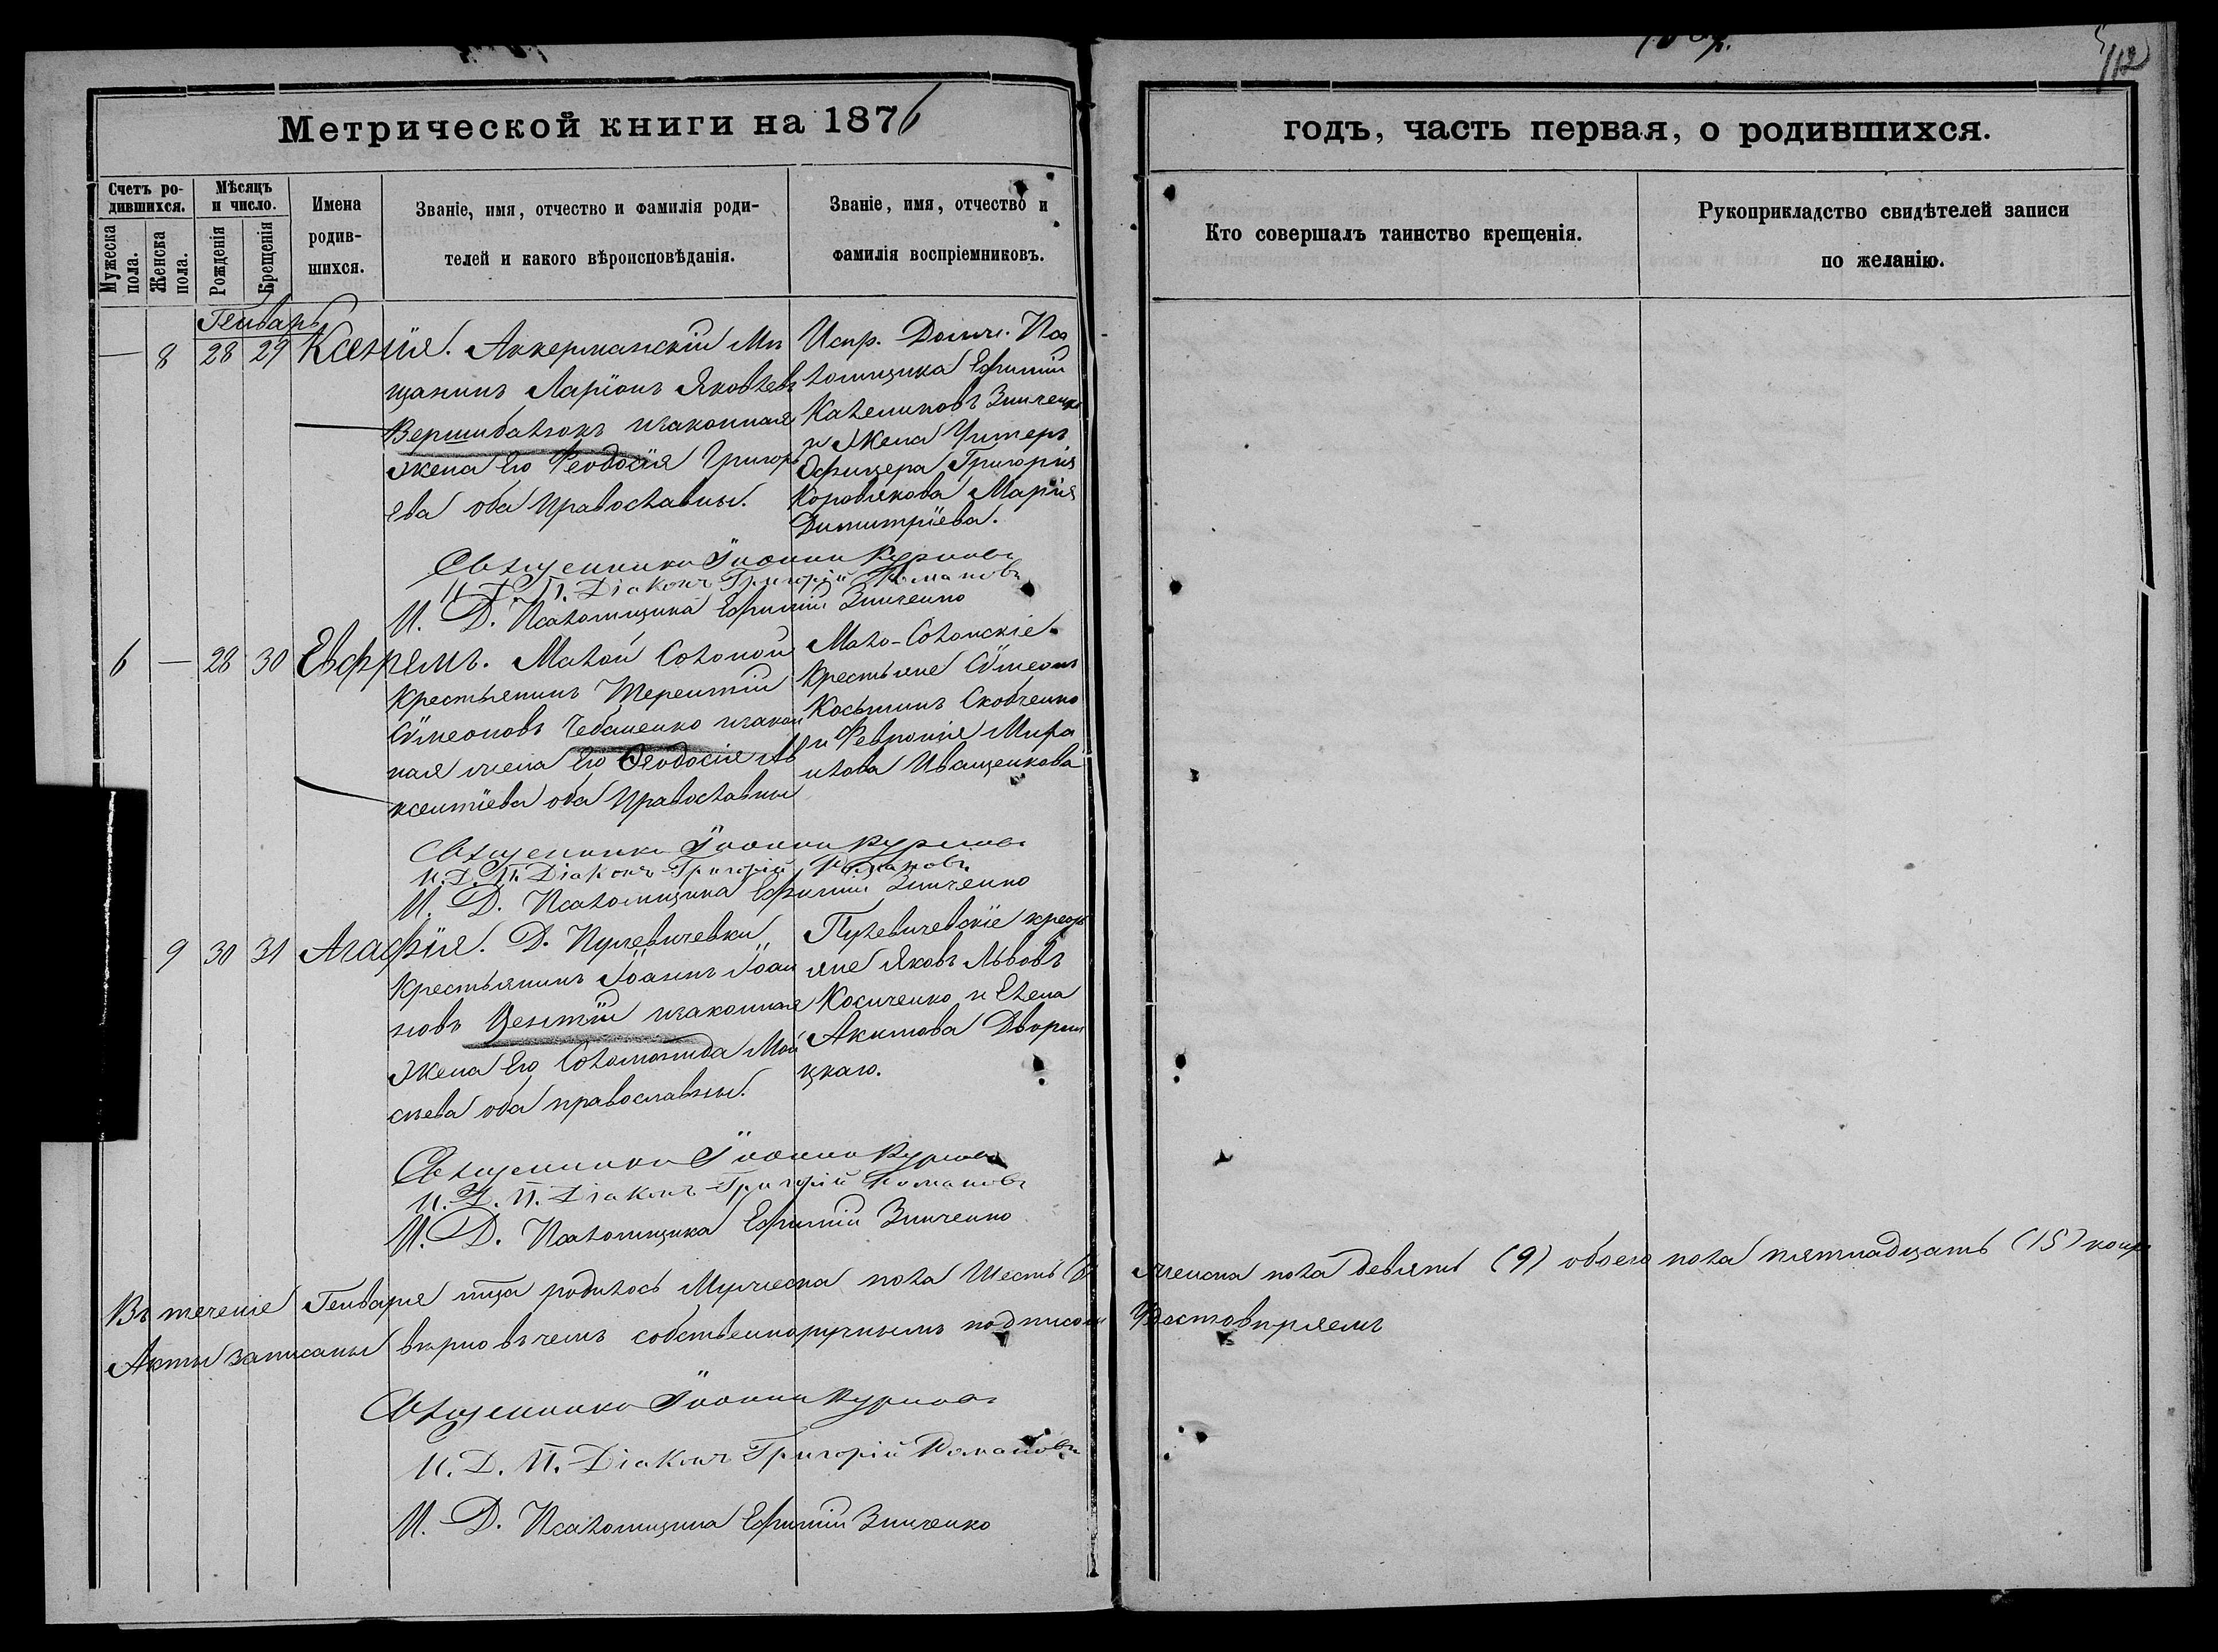 112
Метрической книги на 1876
годъ, часть первая, о родившихся.
Счетъ ро-
дившихся.
Мужеска пола.
Женска пола.
Мѣсяцъ
и число.
Рожденія
Крещенія
Имена
родив-
шихся.
Званіе, имя, отчество и фамилія роди-
телей и какого вѣроисповѣданія.
Званіе, имя, отчество и
фамилія воспріемниковъ.
Кто совершалъ таинство крещенія.
Рукоприкладство свидѣтелей записи
по желанію.
Генварь
— 8 28 29 Ксенія.
Аккерманскій Мѣ
щанинъ Ларіонъ Яковлевъ
Вершибалюкъ изаконная
жена Его Феодосія Григорь
ева оба православны.
Испр. Должн. Пса
ломщика Ефимій
Зинченко
и Жена Унтеръ
Офицера Григорія
Коровякова Марія
Димитріева.
Священникъ Іоаннъ Курковъ
И. Д. П. Діаконъ Григорій Романовъ
И. Д. Псаломщика Ефимій Зинченко
6 — 28 30 Евфремъ.
Малой Солоной
Крестьянинъ Терентій
Сѵмеоновъ Чебаненко изакон
ная жена Его Ѳеодосія Ав
ксентіева оба Православны
Мало-Солонскіе
Крестьяне Сѵмеонъ
Косьминъ Скобченко
и Февронія Миха
илова Иващенкова
Священникъ Іоаннъ Курковъ
И. Д. П. Діаконъ Григорій Романовъ
И. Д. Псаломщика Ефимій Зинченко
9 30 31 Агафія.
Д. Пулевичевки
Крестьянинъ Іоаннъ Іоан
новъ изаконная
жена Его Соломонида Мой
сѣева оба православны.
Пулевичевскіе кресть
яне Яковъ Львовъ
Косиченко и Елена
Акимова Дворни
цкаго.
Священникъ Іоаннъ Курковъ
И. Д. П. Діаконъ Григорій Романовъ
И. Д. Псаломщика Ефимій Зинченко
Въ теченіе Генваря мца родилось Мужеска пола Шесть (6) Женска пола девять (9) обоего пола пятнадцать (15) коихъ
Акты записаны вѣрно въ чемъ собственноручнымъ подписомъ Удостовѣряемъ
Священникъ Іоаннъ Курковъ
И. Д. П. Діаконъ Григорій Романовъ
И. Д. Псаломщика Ефимій Зинченко